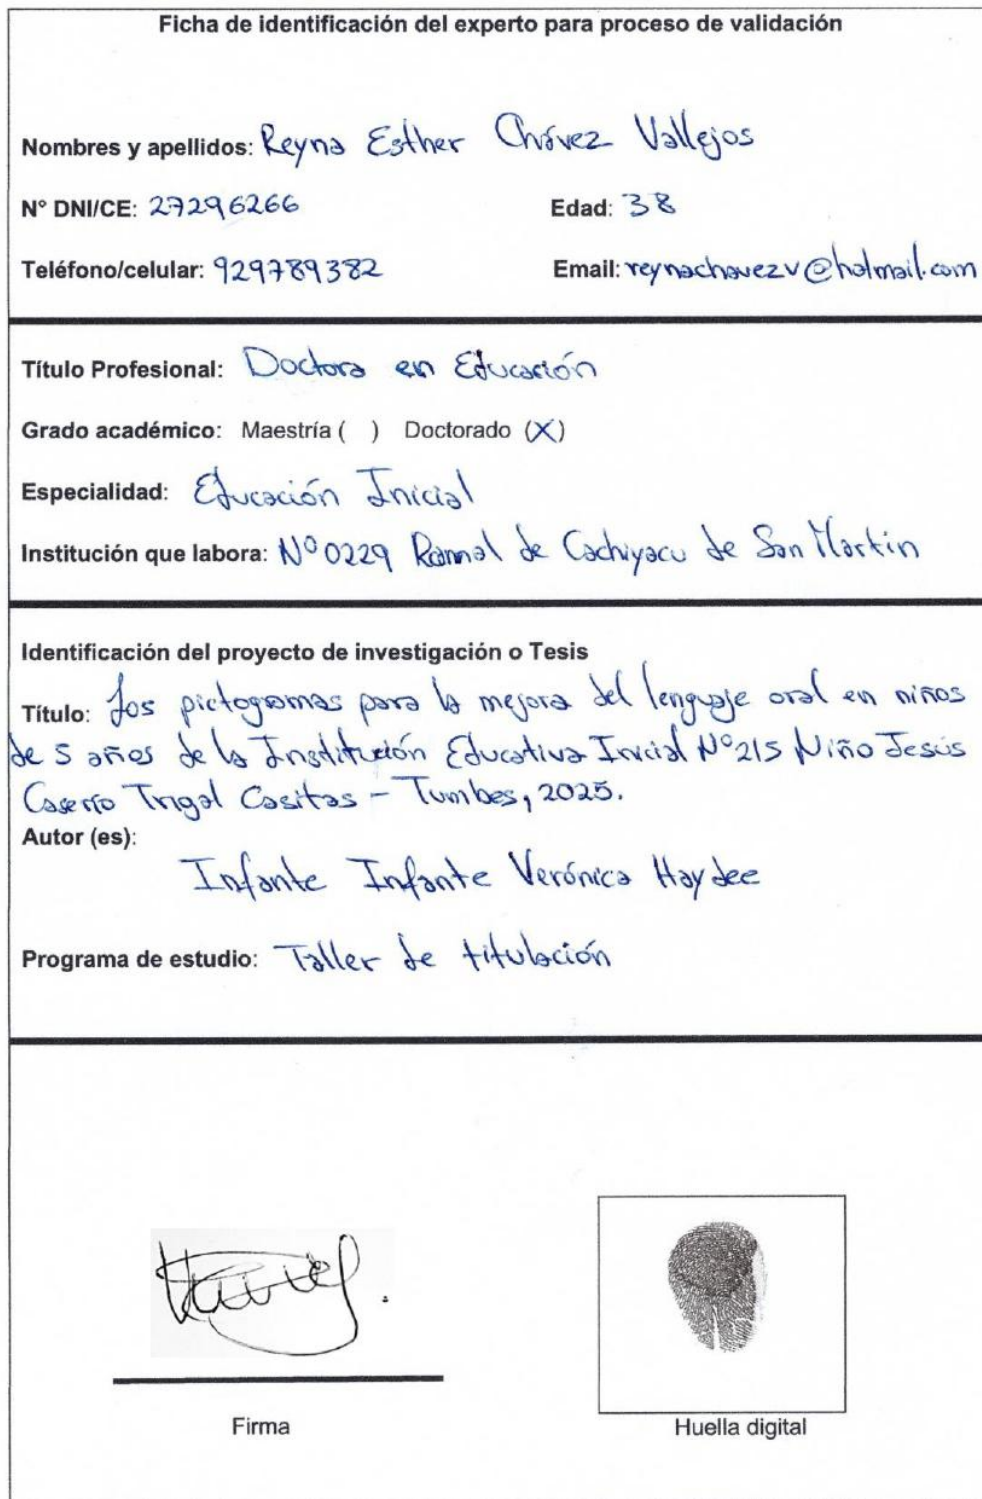 Ficha de identificación del experto para proceso de validación
Nombres y apellidos: Reyna Esther Chávez Vallejos
N° DNI/CE: 27296266 Edad: 38
Teléfono/celular: 929789382 Email: reynachavezv@hotmail.com
Título Profesional: Doctora en Educación
Grado académico: Maestría ( ) Doctorado (X)
Especialidad: Educación Inicial
Institución que labora: N° 0229 Ramal de Cachiyacu de San Martin
Identificación del proyecto de investigación o Tesis
Título: Los pictogramas para la mejora del lenguaje oral en niños
de 5 años de la Institución Educativa Inicial N° 215 Niño Jesús
Caserío Trigal Casitas – Tumbes, 2025.
Autor (es):
Infante Infante Verónica Haydee
Programa de estudio: Taller de titulación
Firma Huella digital